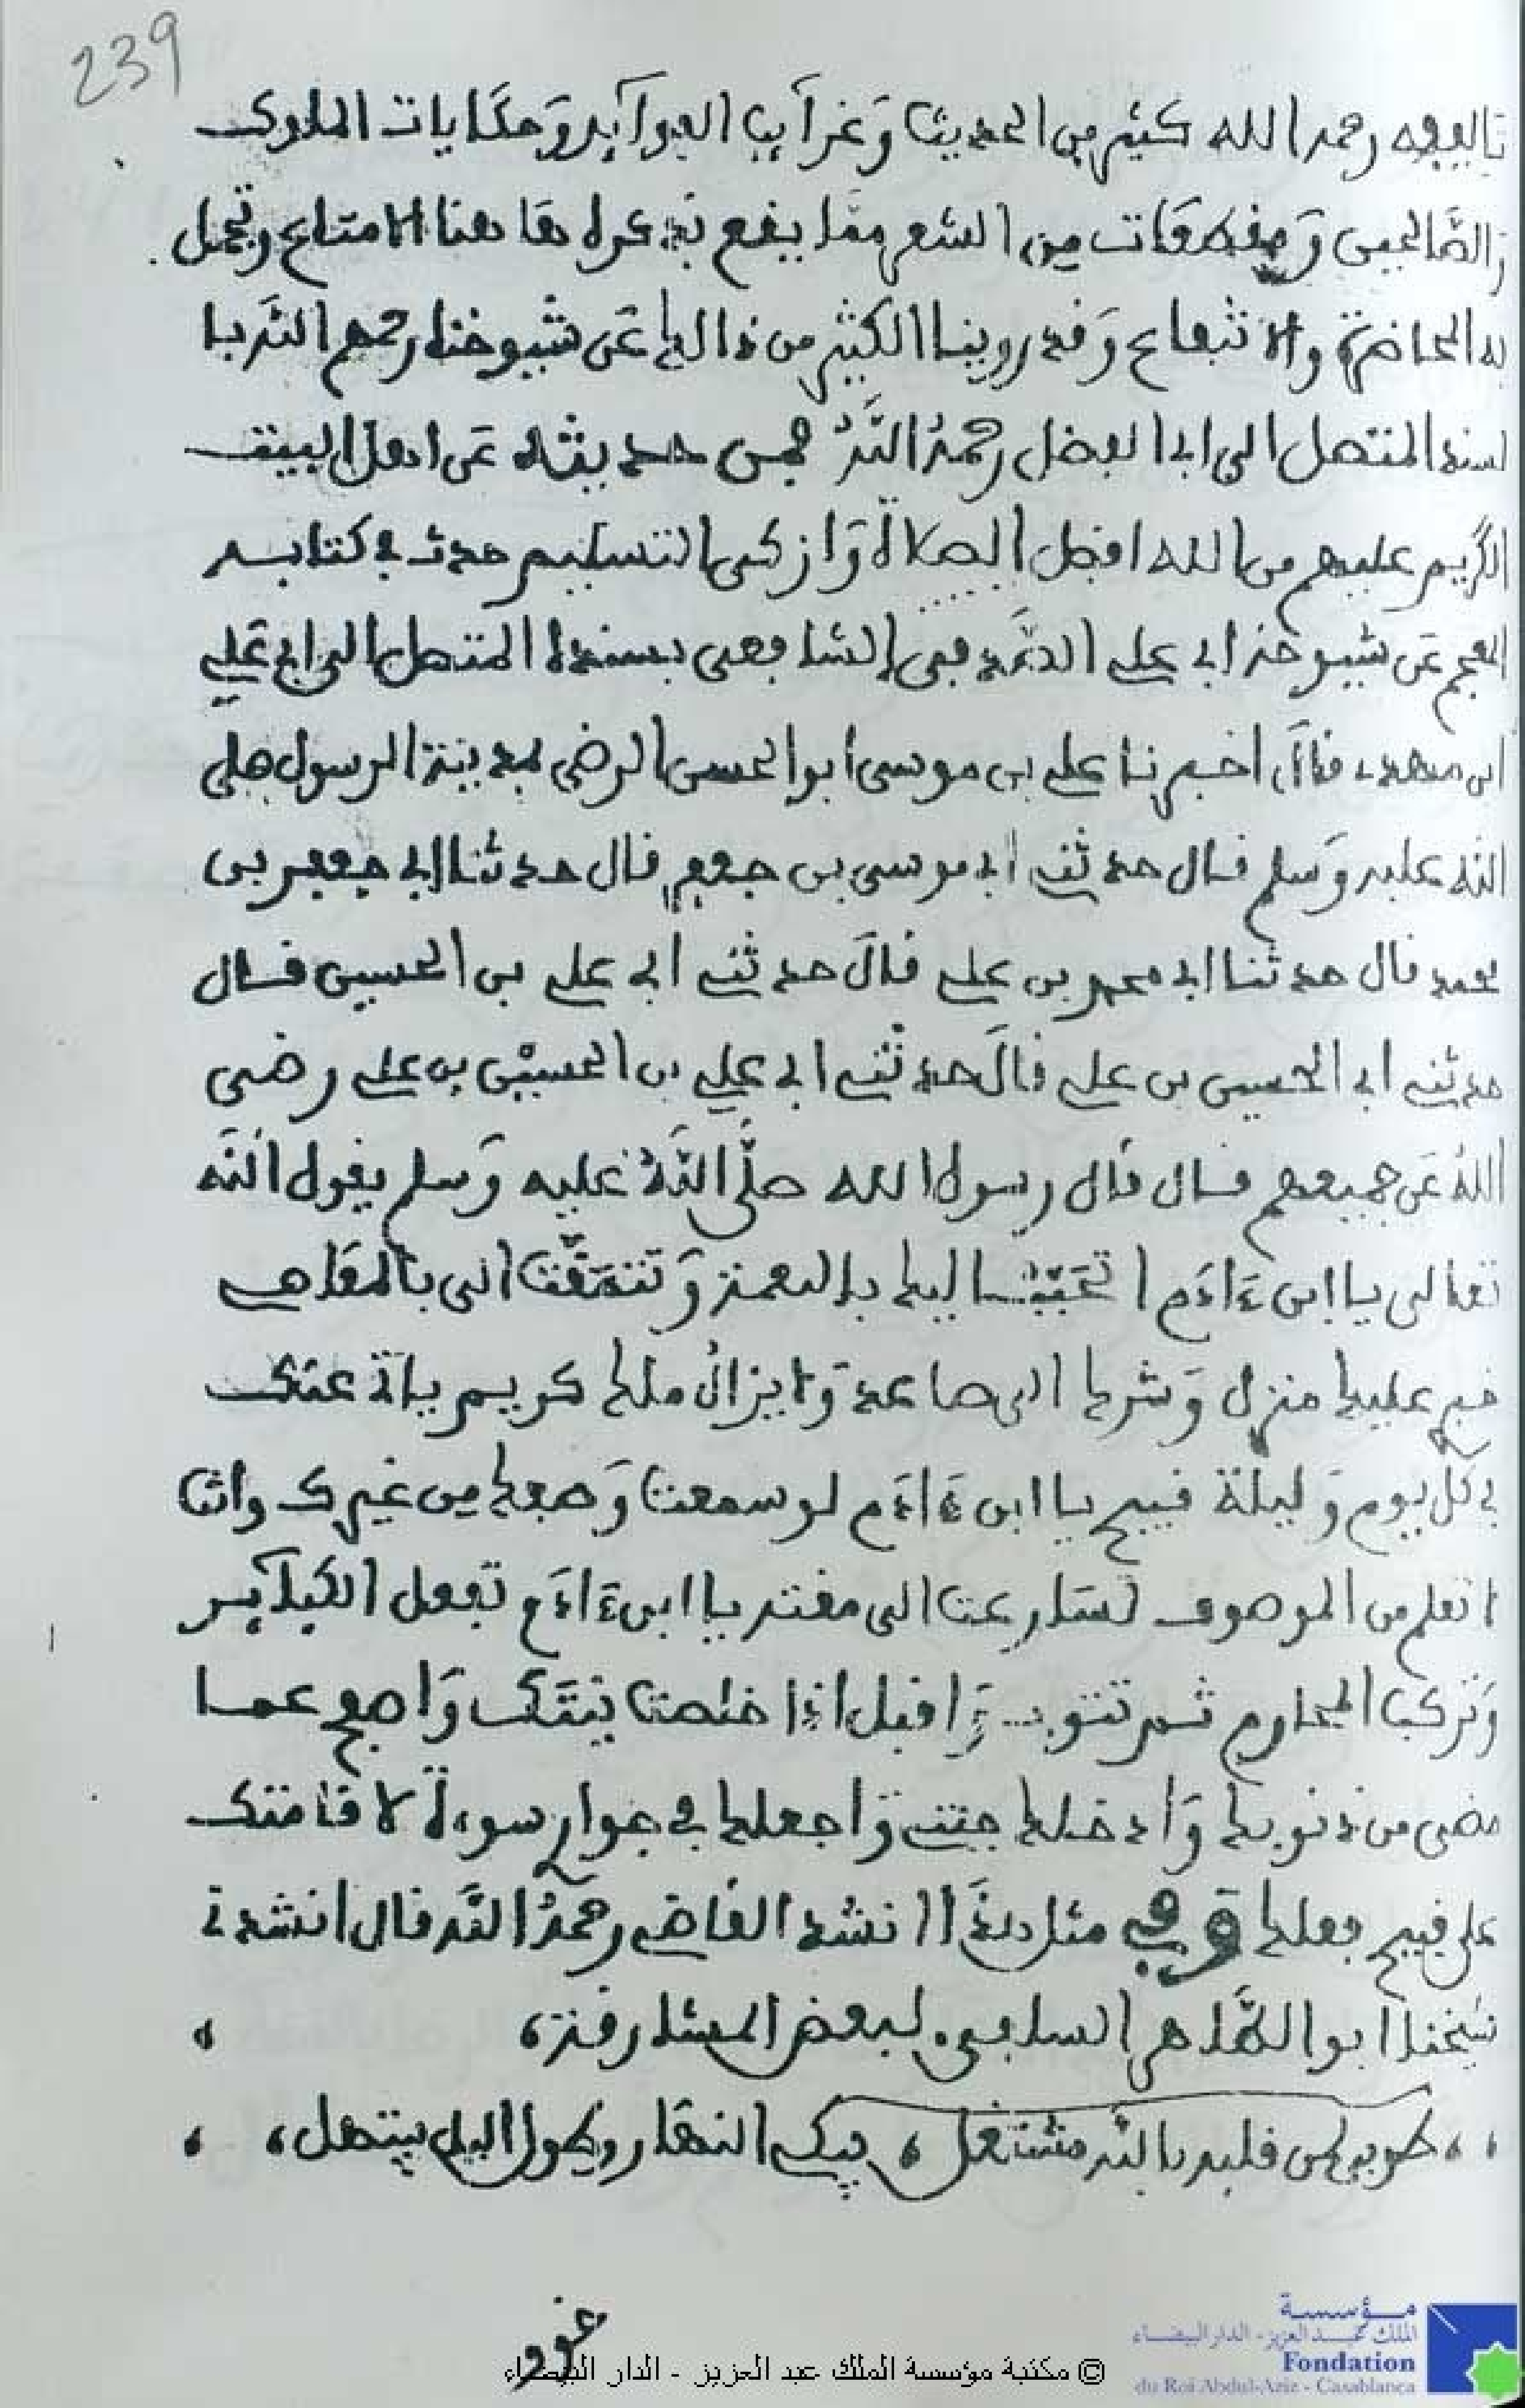 239
تاليفه رحمه الله كثير من الحديث وَغرآيب الفوآيد وَحكايات الملوك
والصَّالحين وَمقطعَات من الشعر ممَّا يقع بذكره هَا هنا الامتاع وتجمل
به المحاضرة والانتفاع وَقد روينا الكثير من ذالك عَن شيوخنا رحمهم الله با
لسند المتصل الى ابى الفضل رحمهُ اللَّهُ فمن حديثه عَن اهل البيت
الكَريم عليهم من الله افضل الصلاة وَازكى التسليم حدث في كتابه
المعجم عَن شيوخه ابي علي الصَّدفي الشافعي بسنده المتصل الى ابي عَلي
ابن مهد، قاآل اخبرنا علي بن موسى أبو الحسن الرضى بمدينة الرسول صلى
الله عليه وَسلم قال حدثني أبي موسى بن جعفر قال حدثنا ابي جعفر بن
محمد قال حدثنا ابي محمد بن علي قالَ حدثني أبي علي بن الحسين قال
حدثني ابي الحسين بن علي قالَ حدثني ابي علي بن الحسيْن بن علي رضي
اللهُ عَن جميعهم قال قال رسول الله صلَّى اللَّهُ عَليه وَسلم يقول اللَّه
تعَالى يا ابن ءَادَم اتحَبّبُ اليك بالنعمة وَتتمَقَّت الى بالمعَاصي
خيري عليك منزل وَشرك الى صاعد وَلا يزالُ ملك كريم ياتى عنك
في كل يوم وَليلة قبيح يا ابن ءَادَم لو سمعت وَصفك من غيرك وانت
لا تعلم من الموصوف لسَارعت الى مقته يا ابن ءَادَم تفعل الكبآير
وَتركب المحارم ثم تتوب وَاقبل اذا خلصت نيتَك وَاصفح عما
مضى من ذنوبك وَادخلك جنتي وَاجعلك في جوار سوءة لاقامتك
على قبيح فعلك وفي مثل ذلكَ انشد القاضي رحمهُ اللَّه قال انشدني
شيخنا ابو الطَّاهر السلفي لبعض المشارقة،
،، طوبى لمن قلبه بالله مشتغل ، يبكي النهَار وطول اليل يبتهل، ،
© مكتبة مؤسسة الملك عبد العزيز - الدار البيضاء
مـؤسسـة
الملك عبـد العزيز - الدار البيضـاء
Fondation
du Roi Abdul-Aziz - Casablanca